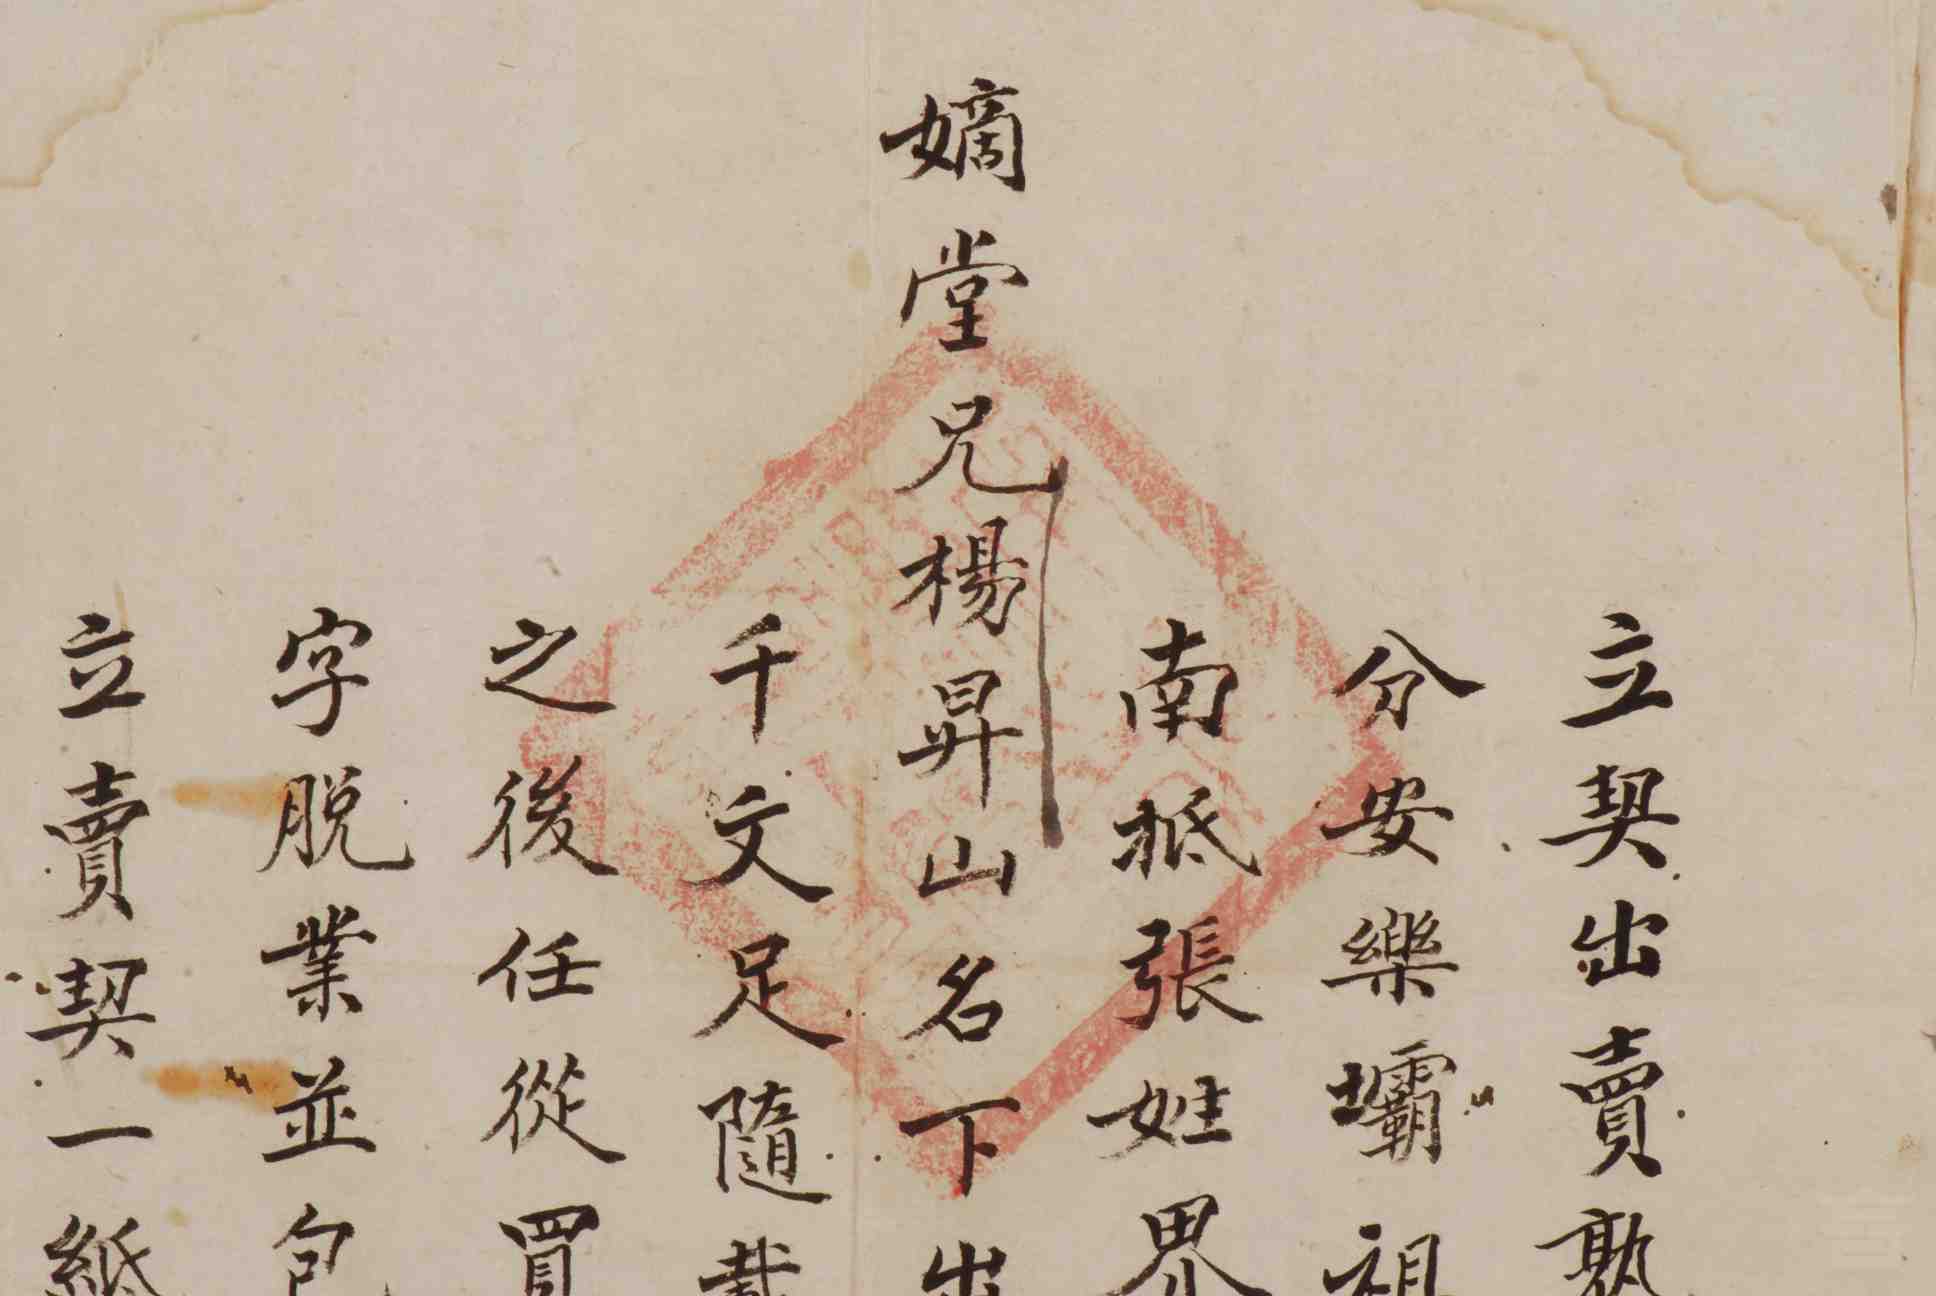 立契出賣熟
分安樂壩祖
南抵張姓界
嫡堂兄楊昇山名下出
千文足隨載
之後任從買
字脱業並包
立賣契一紙